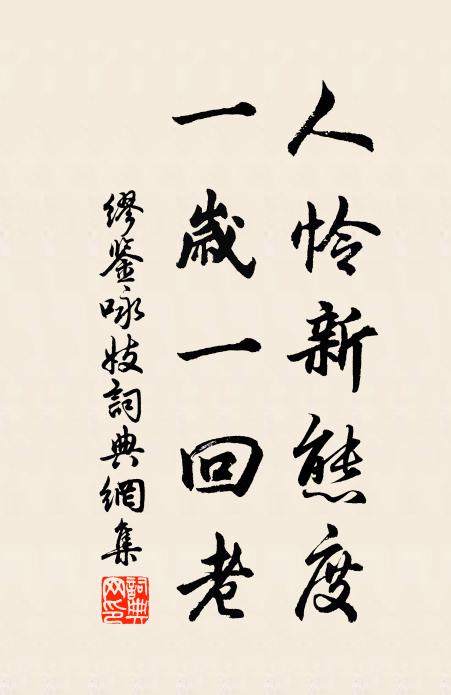 人怜新態度
一歲一回老
缪鉴咏妓詞典網集
詞典网印